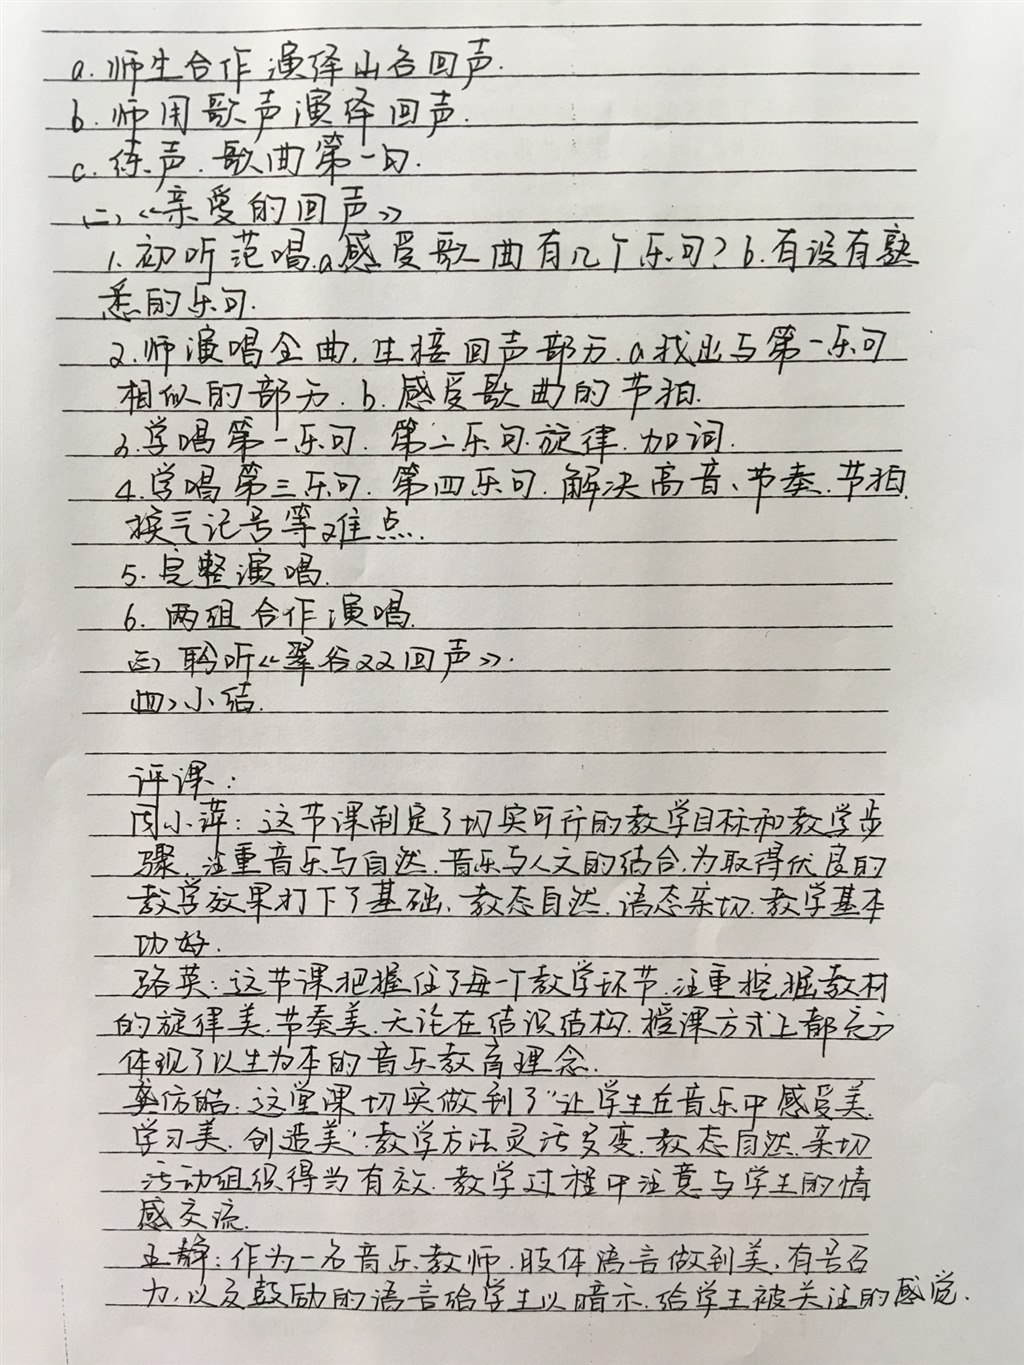 a.师生合作演绎山谷回声.
b.师用歌声演绎回声.
c.练声.歌曲第一句.
(二)《亲爱的回声》
1.初听范唱.a感受歌曲有几个乐句?b.有没有熟
悉的乐句.
2.师演唱全曲,生接回声部分.a找出与第一乐句
相似的部分.b.感受歌曲的节拍.
3.学唱第一乐句.第二乐句.旋律.加词.
4.学唱第三乐句.第四乐句.解决高音、节奏.节拍.
换气记号等难点.
5.完整演唱.
6.两组合作演唱.
(三)聆听《翠谷双双回声》.
(四)小结.
评课:
周小萍:这节课制定了切实可行的教学目标和教学步
骤.注重音乐与自然.音乐与人文的结合,为取得优良的
教学效果打下了基础、教态自然.语态亲切.教学基本
功好.
骆英:这节课把握住了每一个教学环节.注重挖掘教材
的旋律美.节奏美.无论在结识结构.授课方式上都充分
体现了以生为本的音乐教育理念.
龚仿皓.这堂课切实做到了"让学生在音乐中感受美.
学习美.创造美".教学方法灵活多变.教态自然.亲切
活动组织得当有效.教学过程中注意与学生的情
感交流.
王静:作为一名音乐教师.肢体语言做到美.有号召
力.以及鼓励的语言给学生以暗示.给学生被关注的感觉.